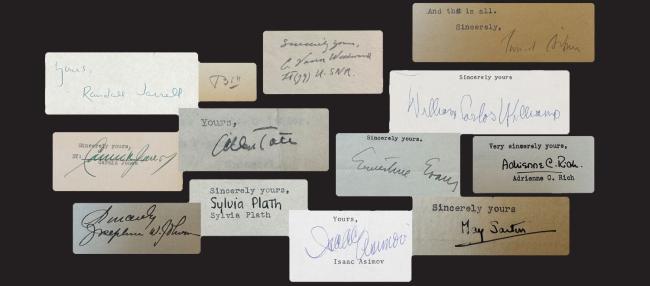 And that is all.
Sincerely,
Sincerely yours,
C. Vann Woodward
Lt (jg) U.S.N.R.
Yours,
Randall Jarrell
Bill
Sincerely yours
William Carlos Williams
Yours,
Allen Tate
Sincerely yours,
Sincerely yours,
Ernestine Evans
Very sincerely yours,
Adrienne C. Rich.
Adrienne C. Rich
Sincerely yours,
Sylvia Plath
Sylvia Plath
Sincerely
Josephine W. Johnson
Yours,
Isaac Asimov
Isaac Asimov
Sincerely yours
May Sarton